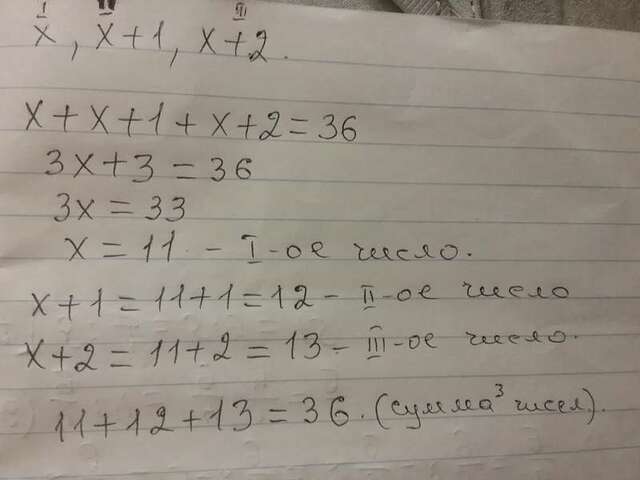 I II II
x, x+1, x+2.
x+x+1+x+2=36
3x+3=36
3x=33
x=11 - I-ое число.
x+1=11+1=12- II-ое число
x+2=11+2=13- III-ое число.
11+12+13=36. (сумма 3 чисел).